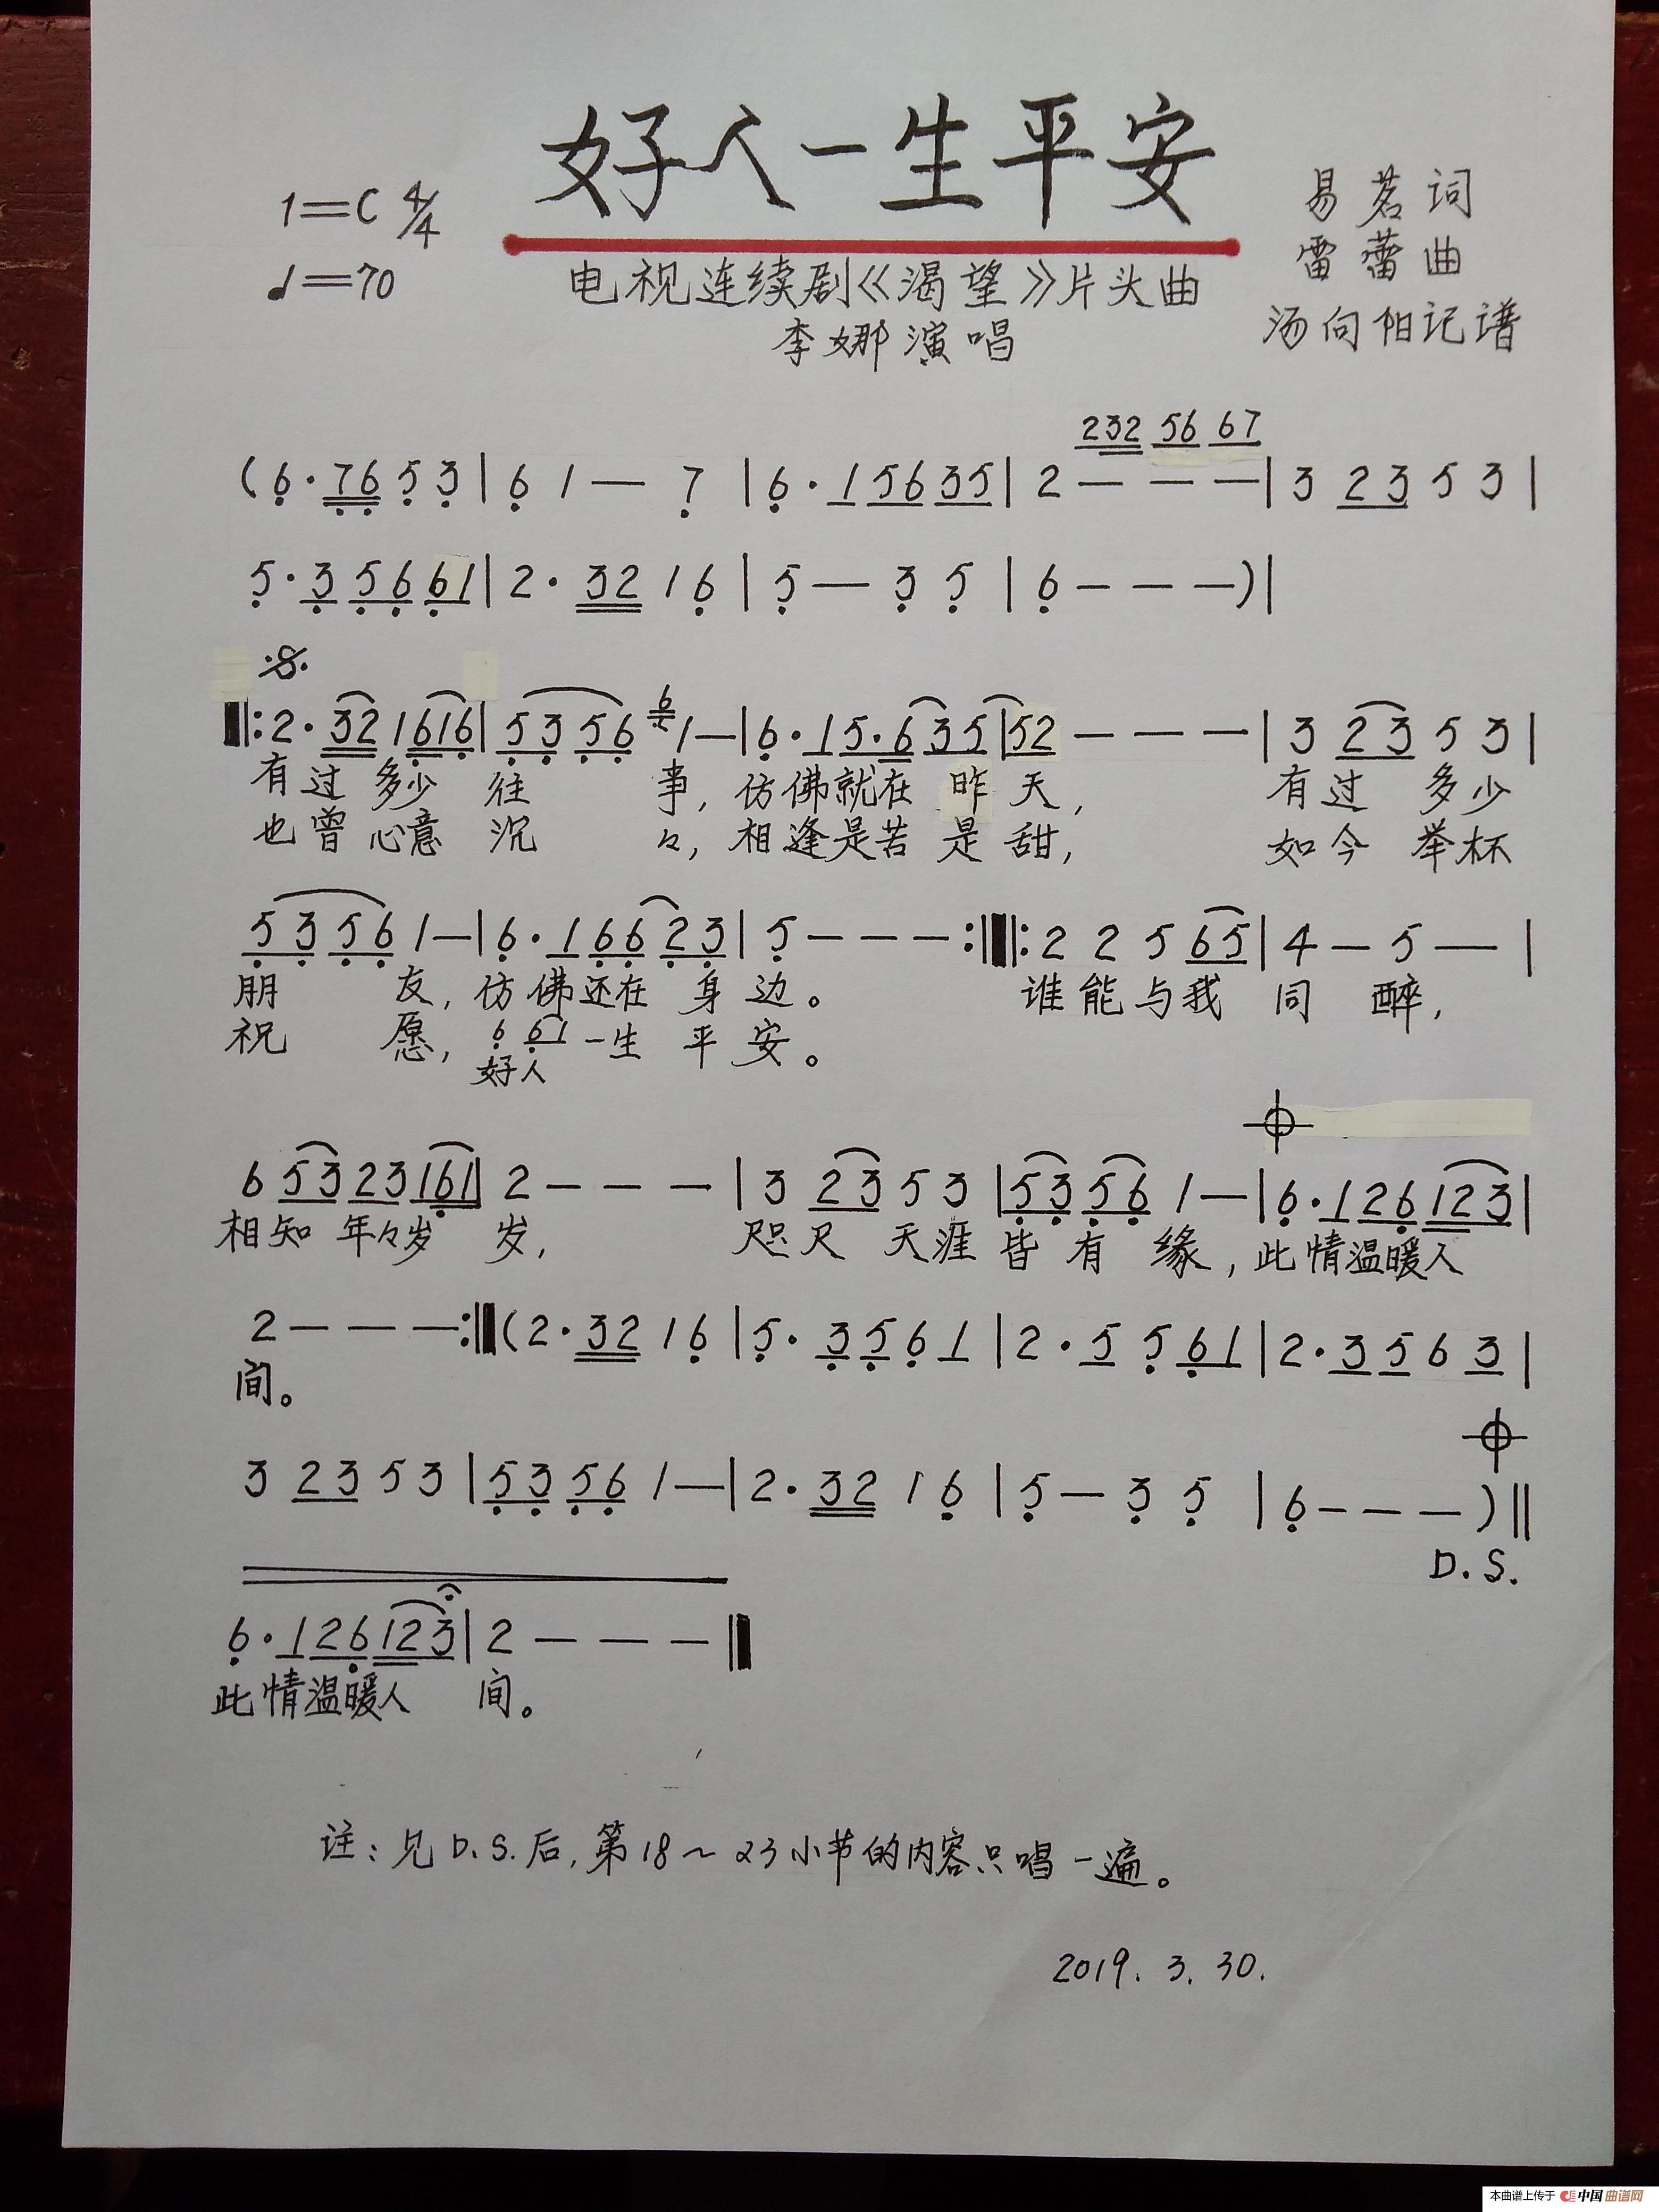 好人一生平安
1=C 4/4
♩=70
易茗词
雷蕾曲
汤向阳记谱
电视连续剧《渴望》片头曲
李娜演唱
232 56 67
(6·76 5 3 | 6 1 — 7 | 6·1 56 35 | 2 — — — | 3 23 5 3 |
5·3 56 61 | 2·32 1 6 | 5 — 3 5 | 6 — — —) |
𝄋
‖:2·32 1616 | 53 56 6 1 — | 6·1 5·6 35 | 52 — — — | 3 23 5 3 |
有过 多少 往 事, 仿佛就在 昨 天, 有过 多少
也曾 心意 沉 々, 相逢是苦 是 甜, 如今 举杯
53 56 1 — | 6·1 66 23 | 5 — — — :‖: 2 2 5 65 | 4 — 5 — |
朋 友, 仿佛还在 身 边。 谁能与我 同 醉,
祝 愿, 6 61 一生 平 安。
好人
6 53 23 161 | 2 — — — | 3 23 5 3 | 53 56 1 — | 6·1 26 123 |
相知 年々岁 岁, 咫尺 天涯 皆 有 缘, 此情温暖人
2 — — — :‖ (2·32 1 6 | 5·3 5 6 1 | 2·5 5 61 | 2·3 5 6 3 |
间。
3 23 5 3 | 53 56 1 — | 2·32 1 6 | 5 — 3 5 | 6 — — —) ‖
D.S.
6·1 26 123 | 2 — — — ‖
此情温暖人 间。
注:见D.S.后,第18～23小节的内容只唱一遍。
2019.3.30.
本曲谱上传于 中国曲谱网